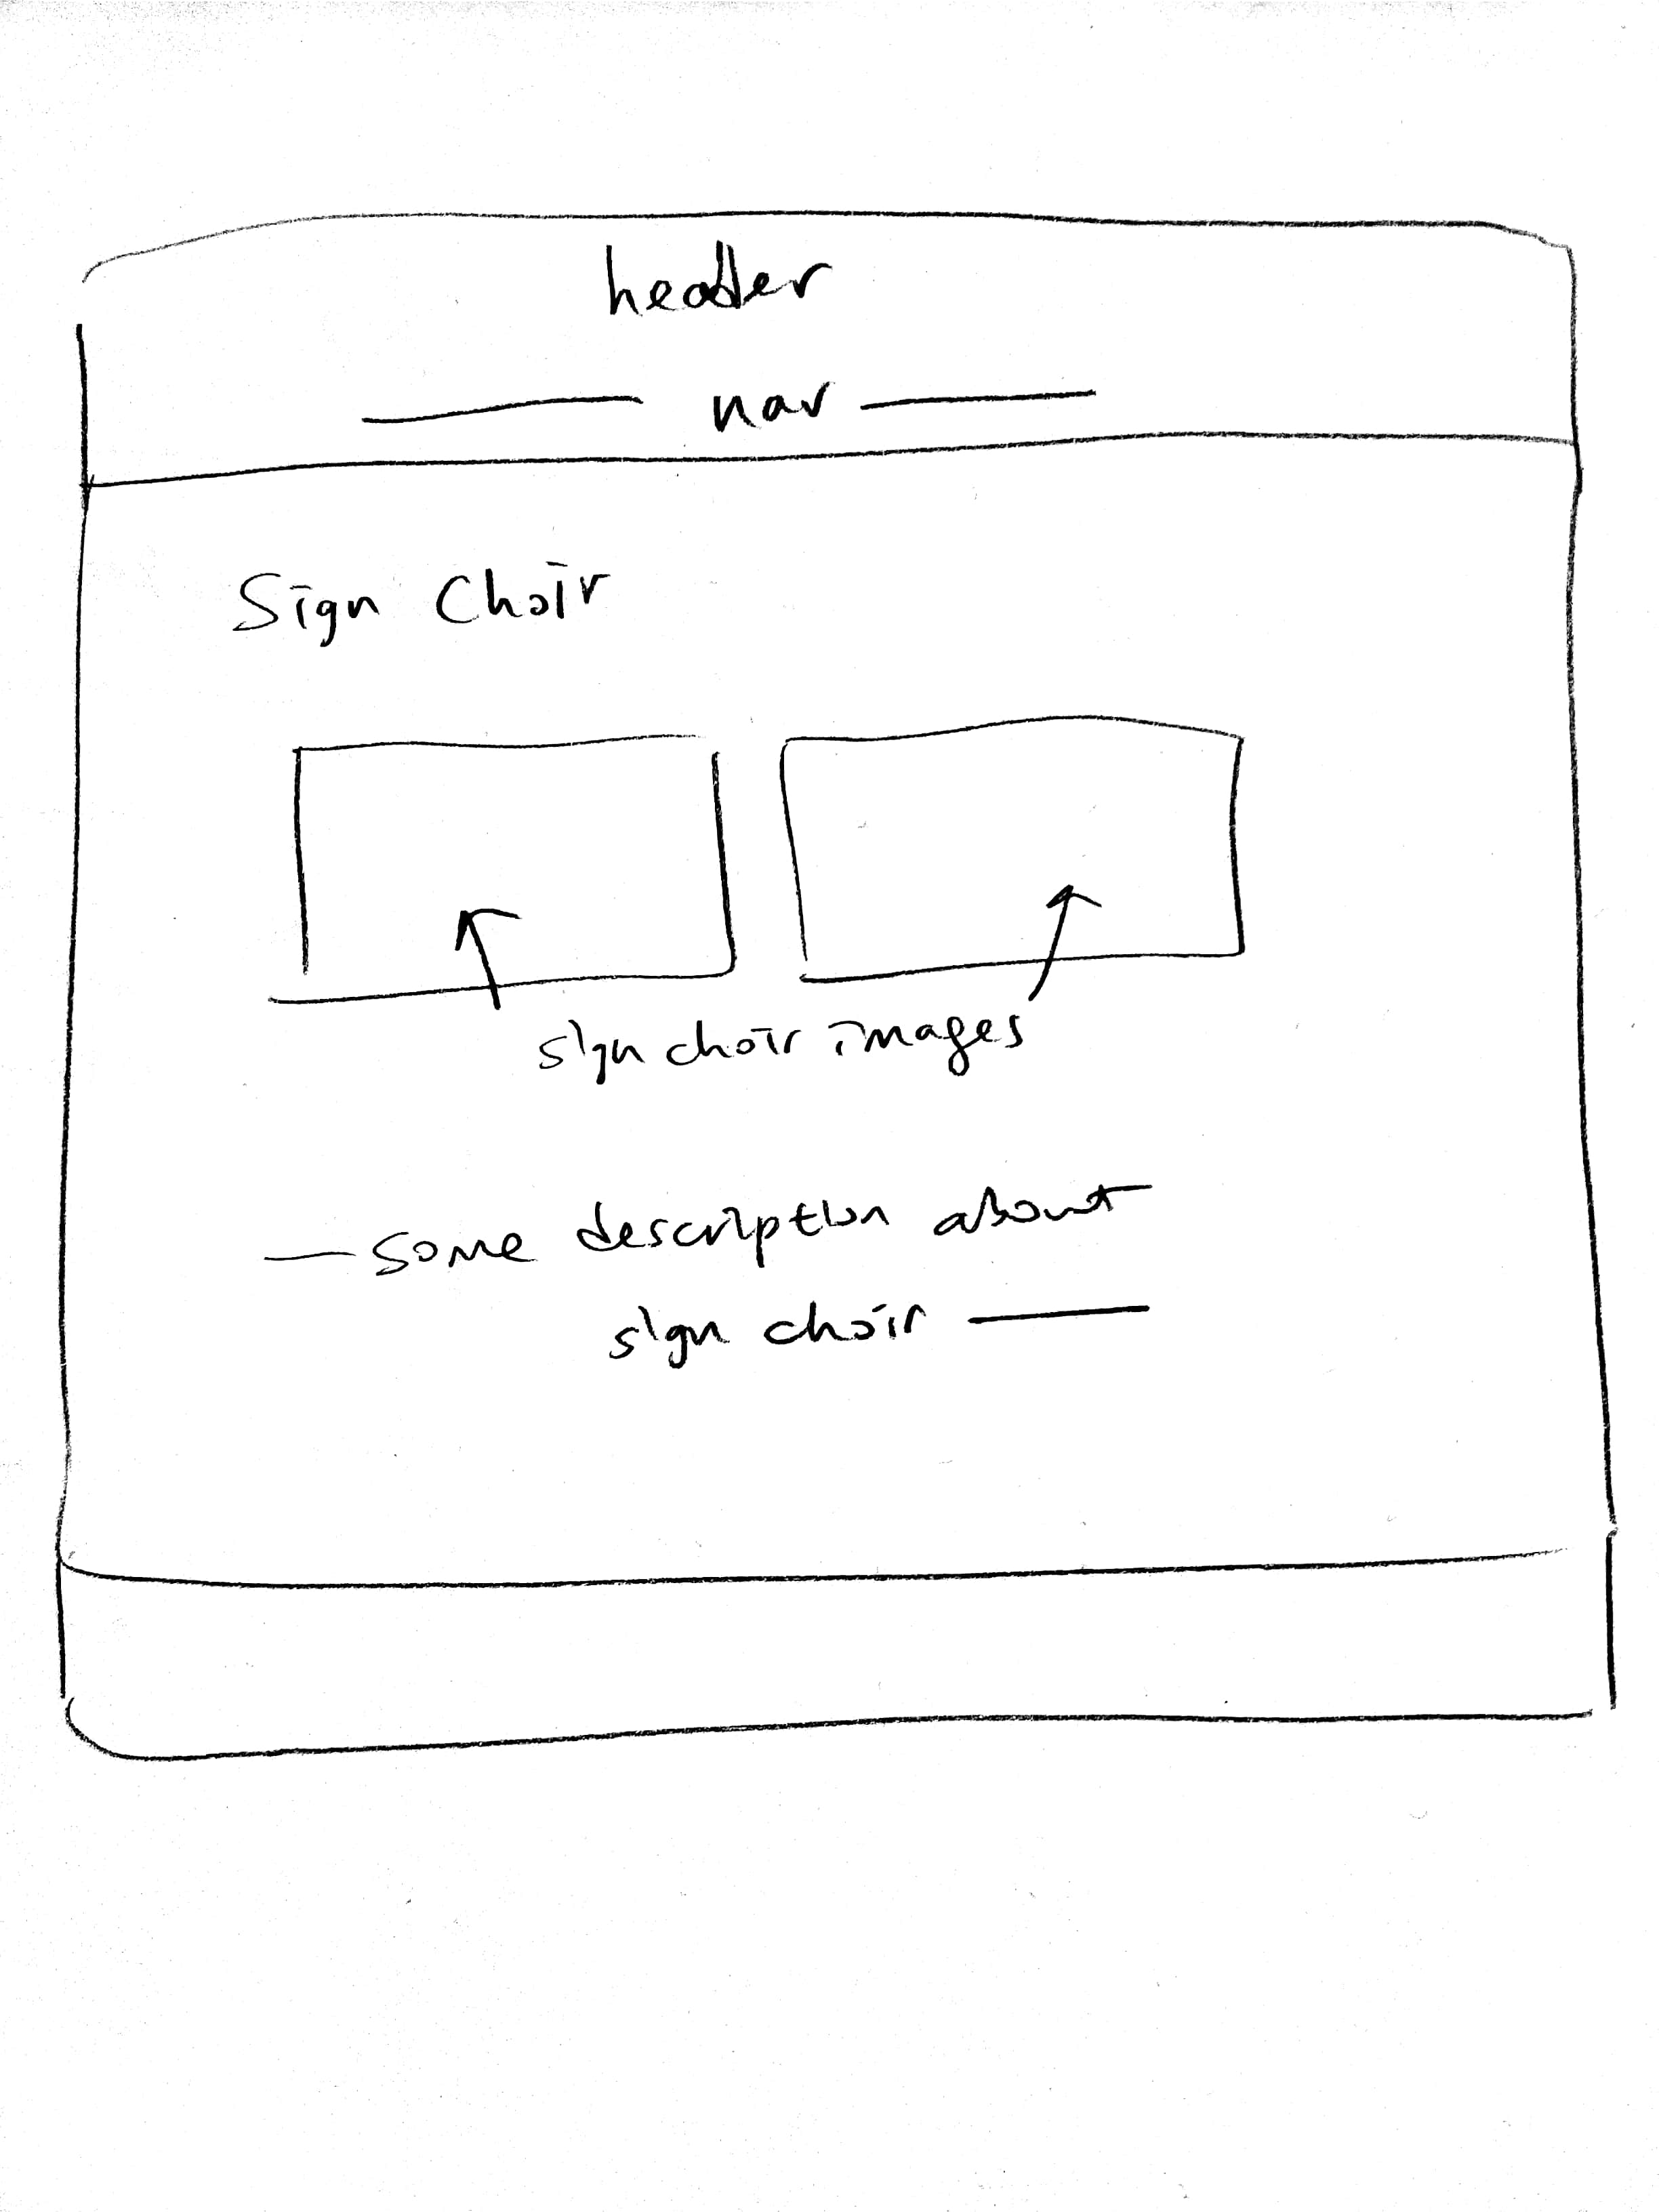 header
nav
Sign Choir
sign choir images
some description about
sign choir